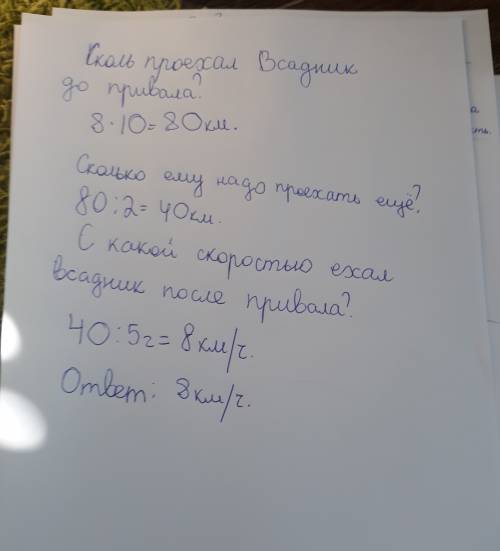 Сколь проехал Всадник
до привала?
8·10=80км.
Сколько ему надо проехать ещё?
80:2=40км.
С какой скоростью ехал
всадник после привала?
40:5ч=8км/ч.
Ответ: 8км/ч.